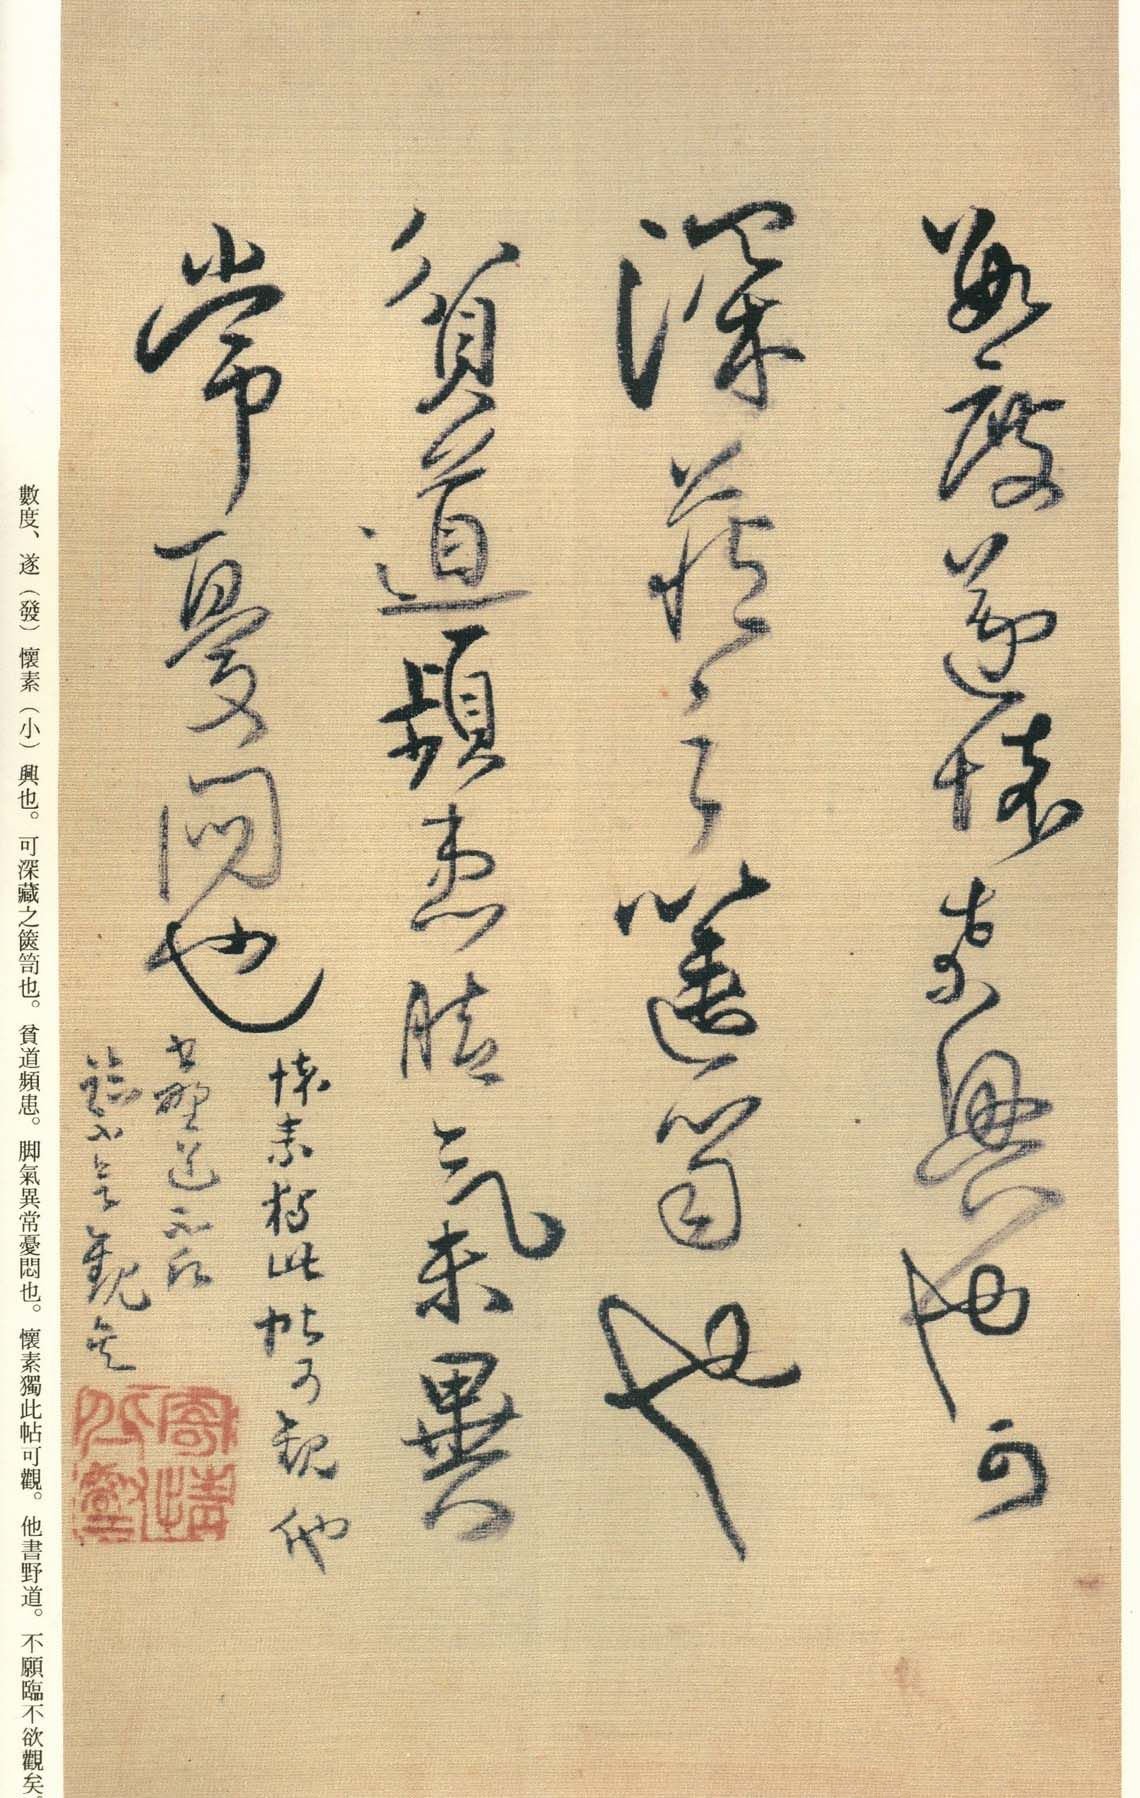 數度遂懷素興也可
深藏之篋笥也
貧道頻患脚氣異
常憂悶也
懷素獨此帖可觀他
書野道不願
臨不欲觀矣
數度、遂（發）懷素（小）興也。可深藏之篋笥也。貧道頻患。脚氣異常憂悶也。懷素獨此帖可觀。他書野道。不願臨不欲觀矣。